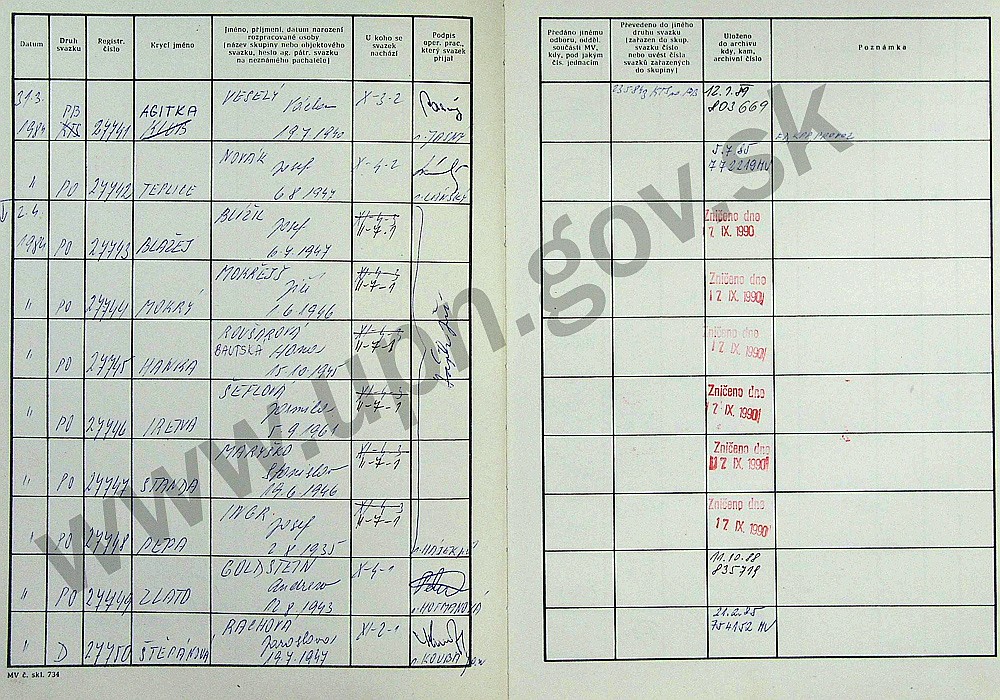 Datum
Druh
svazku
Registr.
číslo
Krycí jméno
Jméno, příjmení, datum narození
rozpracované osoby
(název skupiny nebo objektového
svazku, heslo ag. pátr. svazku
na neznámého pachatele)
U koho se
svazek
nachází
Podpis
oper. prac.,
který svazek
přijal
Předáno jinému
odboru, odděl.
součásti MV,
kdy, pod jakým
čís. jednacím
Převedeno do jiného
druhu svazku
(zařazen do skup.
svazku číslo
nebo uvést čísla
svazků zařazených
do skupiny)
Uloženo
do archivu
kdy, kam,
archivní číslo
Poznámka
31.3.
1984
PB
KTS
27741
AGITKA
KLUB
VESELÝ
Václav
19 7 1940
X-3-2
12.7.89
803669
"
PO
27742
TEPLICE
NOVÁK
Josef
6 8 1947
X-4-2
5.7.85
772219 MV
2.4.
1984
PO
27743
BLAŽEJ
BLÍŽIL
Josef
6 4 1947
XI-4-3
II-7-1
Zničeno dne
"
PO
27744
MOKRÝ
MOKREJŠ
Jiří
1 6 1946
XI-4-3
II-7-1
Zničeno dne
17 IX. 1990
"
PO
27745
HANKA
ROUŠAROVÁ
BAUTSKÁ Hana
15.10.1945
XI-4-3
II-7-1
Zničeno dne
17 IX. 1990
"
PO
27746
ŠEFLOVÁ
Jarmila
XI-4-3
II-7-1
Zničeno dne
17 IX. 1990
"
PO
27747
STANDA
MARYŠKO
Stanislav
19.6 1946
XI-4-3
II-7-1
Zničeno dne
17 IX. 1990
"
PO
27748
PEPA
INGR
Josef
2 8 1935
XI-4-3
II-7-1
Zničeno dne
17 IX. 1990
"
PO
27749
ZLATO
GOLDSTEIN
Andrew
12 8 1943
X-4-1
11.10.88
835719
"
D
27750
ŠTĚPÁNSKÁ
RACHOVÁ
Jaroslava
19.7.1947
XI-2-1
KOUBA
754152 MV
MV č. skl. 734
www.upn.gov.sk